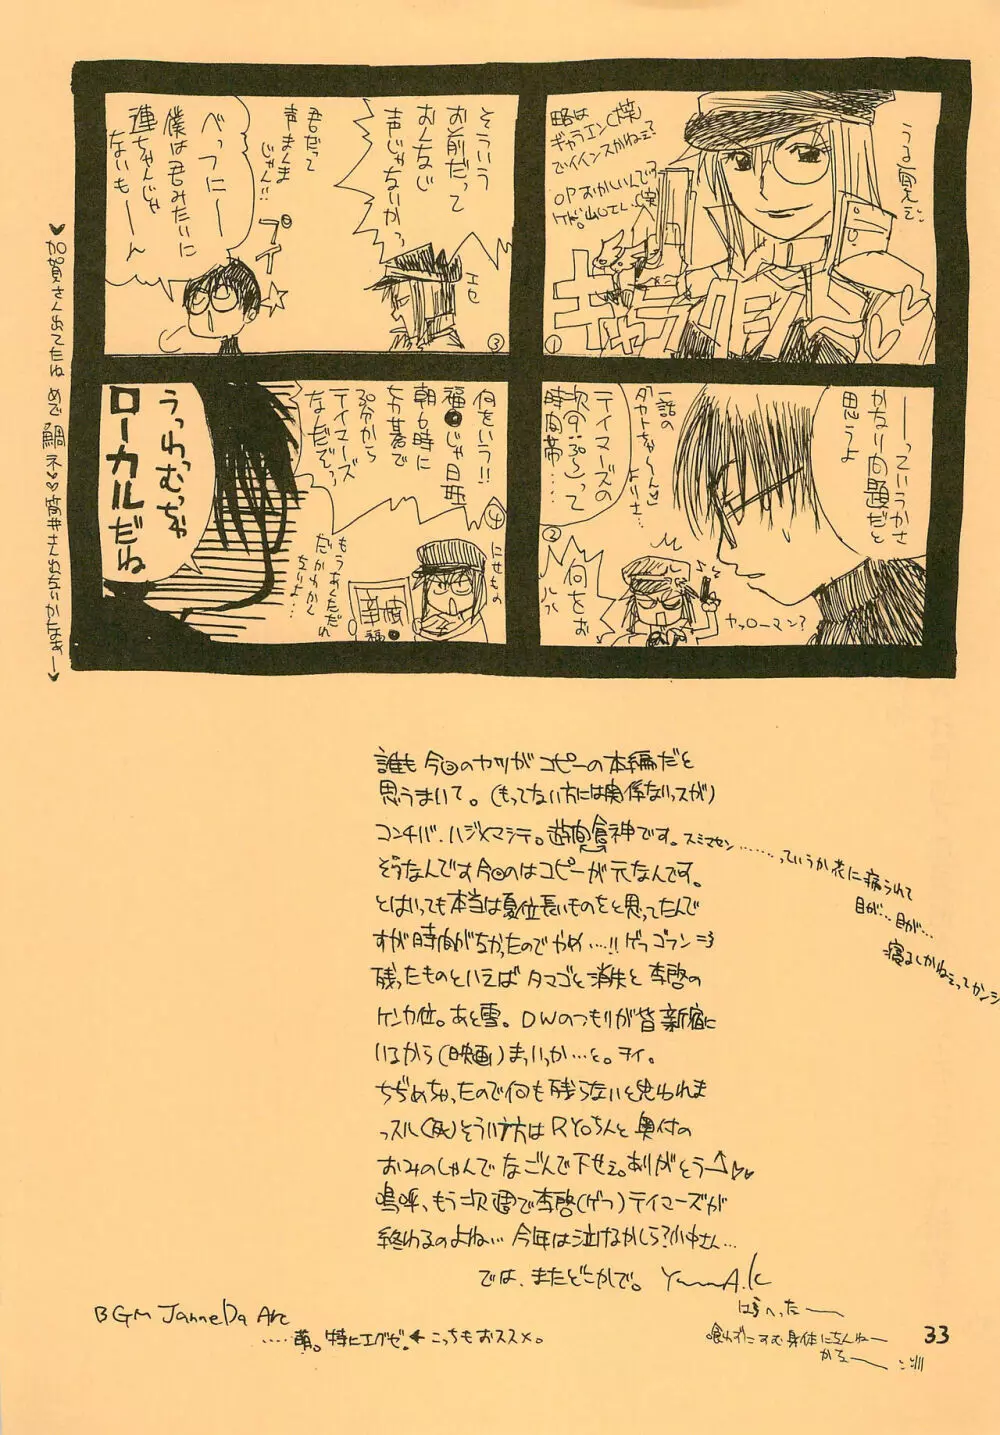 うる覚えで。
略は
ギャラエン(笑)
でイインスかねぇ?
OPおかしいんで
キャラ
①
――っていうかさ
かなり問題だと
思うよ
テイマーズの
次の:ぷ~って
時間帯‥‥
一話の
②
何をお
ヤッローマン?
そういう
お前だって
おんなじ
声じゃないかっ
エセ
③
君だって
声まんま
じゃん!!
べっつにー
僕は君みたいに
連ちゃんじゃ
ないもーーん
プイ
何をいう!!
福●じゃ日曜
朝の6時に
テイマーズ
なんだぞっ
④
にせもの
もうあくだだれ
だかわかん
ないよ…
幸福●
うっわむっちゃ
ローカルだね
♥加賀さん出てたね めで鯛ネ♥♥
誰も今回のヤツがコピーの本編だと
思うまいて。(もってない方には関係ないっスが)
コンチバ、ハジメマシテ。です。スミマセン
……っていうか花に病られて
目が…目が…
寝るしかねぇってカンジ
そうなんです今回のはコピーが元なんです。
とはいっても本当は夏位長いものをと思ってたんで
すが時間がなかったのでやめ…!!ゲフゴフン=3
残ったものといえばタマゴと消失と李啓の
ケンカ位。あと雪。DWのつもりが皆新宿に
いるから(映画)まっいっか…と。ヲイ。
ちぢめちゃったので何も残らないと思われま
っスル(死)そういう方はRYOちんと奥付の
おみのしゃんでなごんで下せぇ。ありがとう↑♥♥
嗚呼、もう次週で李啓(ゲフ)テイマーズが
終わるのよね… 今年は泣けるかしら?小中さん…
では、またどこかで。
BGM Janne Da Arc
‥‥萌。特にエグゼ!←こっちもおススメ。
はらへったーー
喰わずにすむ身体になんねー
かなーー
33